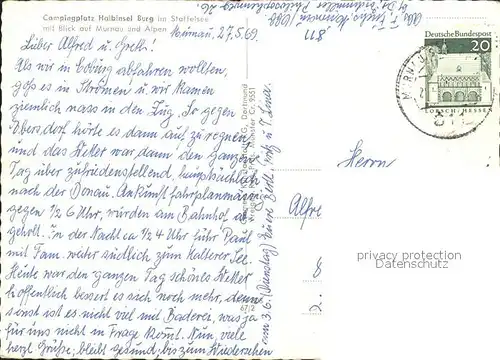 Campingplatz Halbinsel Burg im Staffelsee
mit Blick auf Murnau und Alpen
Murnau, 27.5.69.
Lieber Alfred u. Gretl!
Als wir in Coburg abfahren wollten,
goß es in Strömen u. wir kamen
ziemlich nass in den Zug. So gegen
Ebersdorf hörte es dann auf zu regnen
und das Wetter war dann den ganzen
Tag über zufriedenstellend, hauptsächlich
nach der Donau. Ankunft fahrplanmäßig
gegen 1/2 6 Uhr, wurden am Bahnhof ab-
geholt. In der Nacht ca 1/4 4 Uhr fuhr Paul
mit Fam. weiter südlich zum Kalterer See.
Heute war den ganzen Tag schönes Wetter
hoffentlich bessert es sich noch mehr, denn
sonst ist es nicht viel mit Baderei, was ja
für uns nicht in Frage kommt. Nun, viele
herzl. Grüße, bleibt gesund, bis zum Wiedersehen
am 3.6. (Dienstag) Eure Bertl, Fritz u. Lina.
67/2
Deutsche Bundespost
20
LORSCH/HESSEN
811
Herrn
Alfre
8
privacy protection
Datenschutz